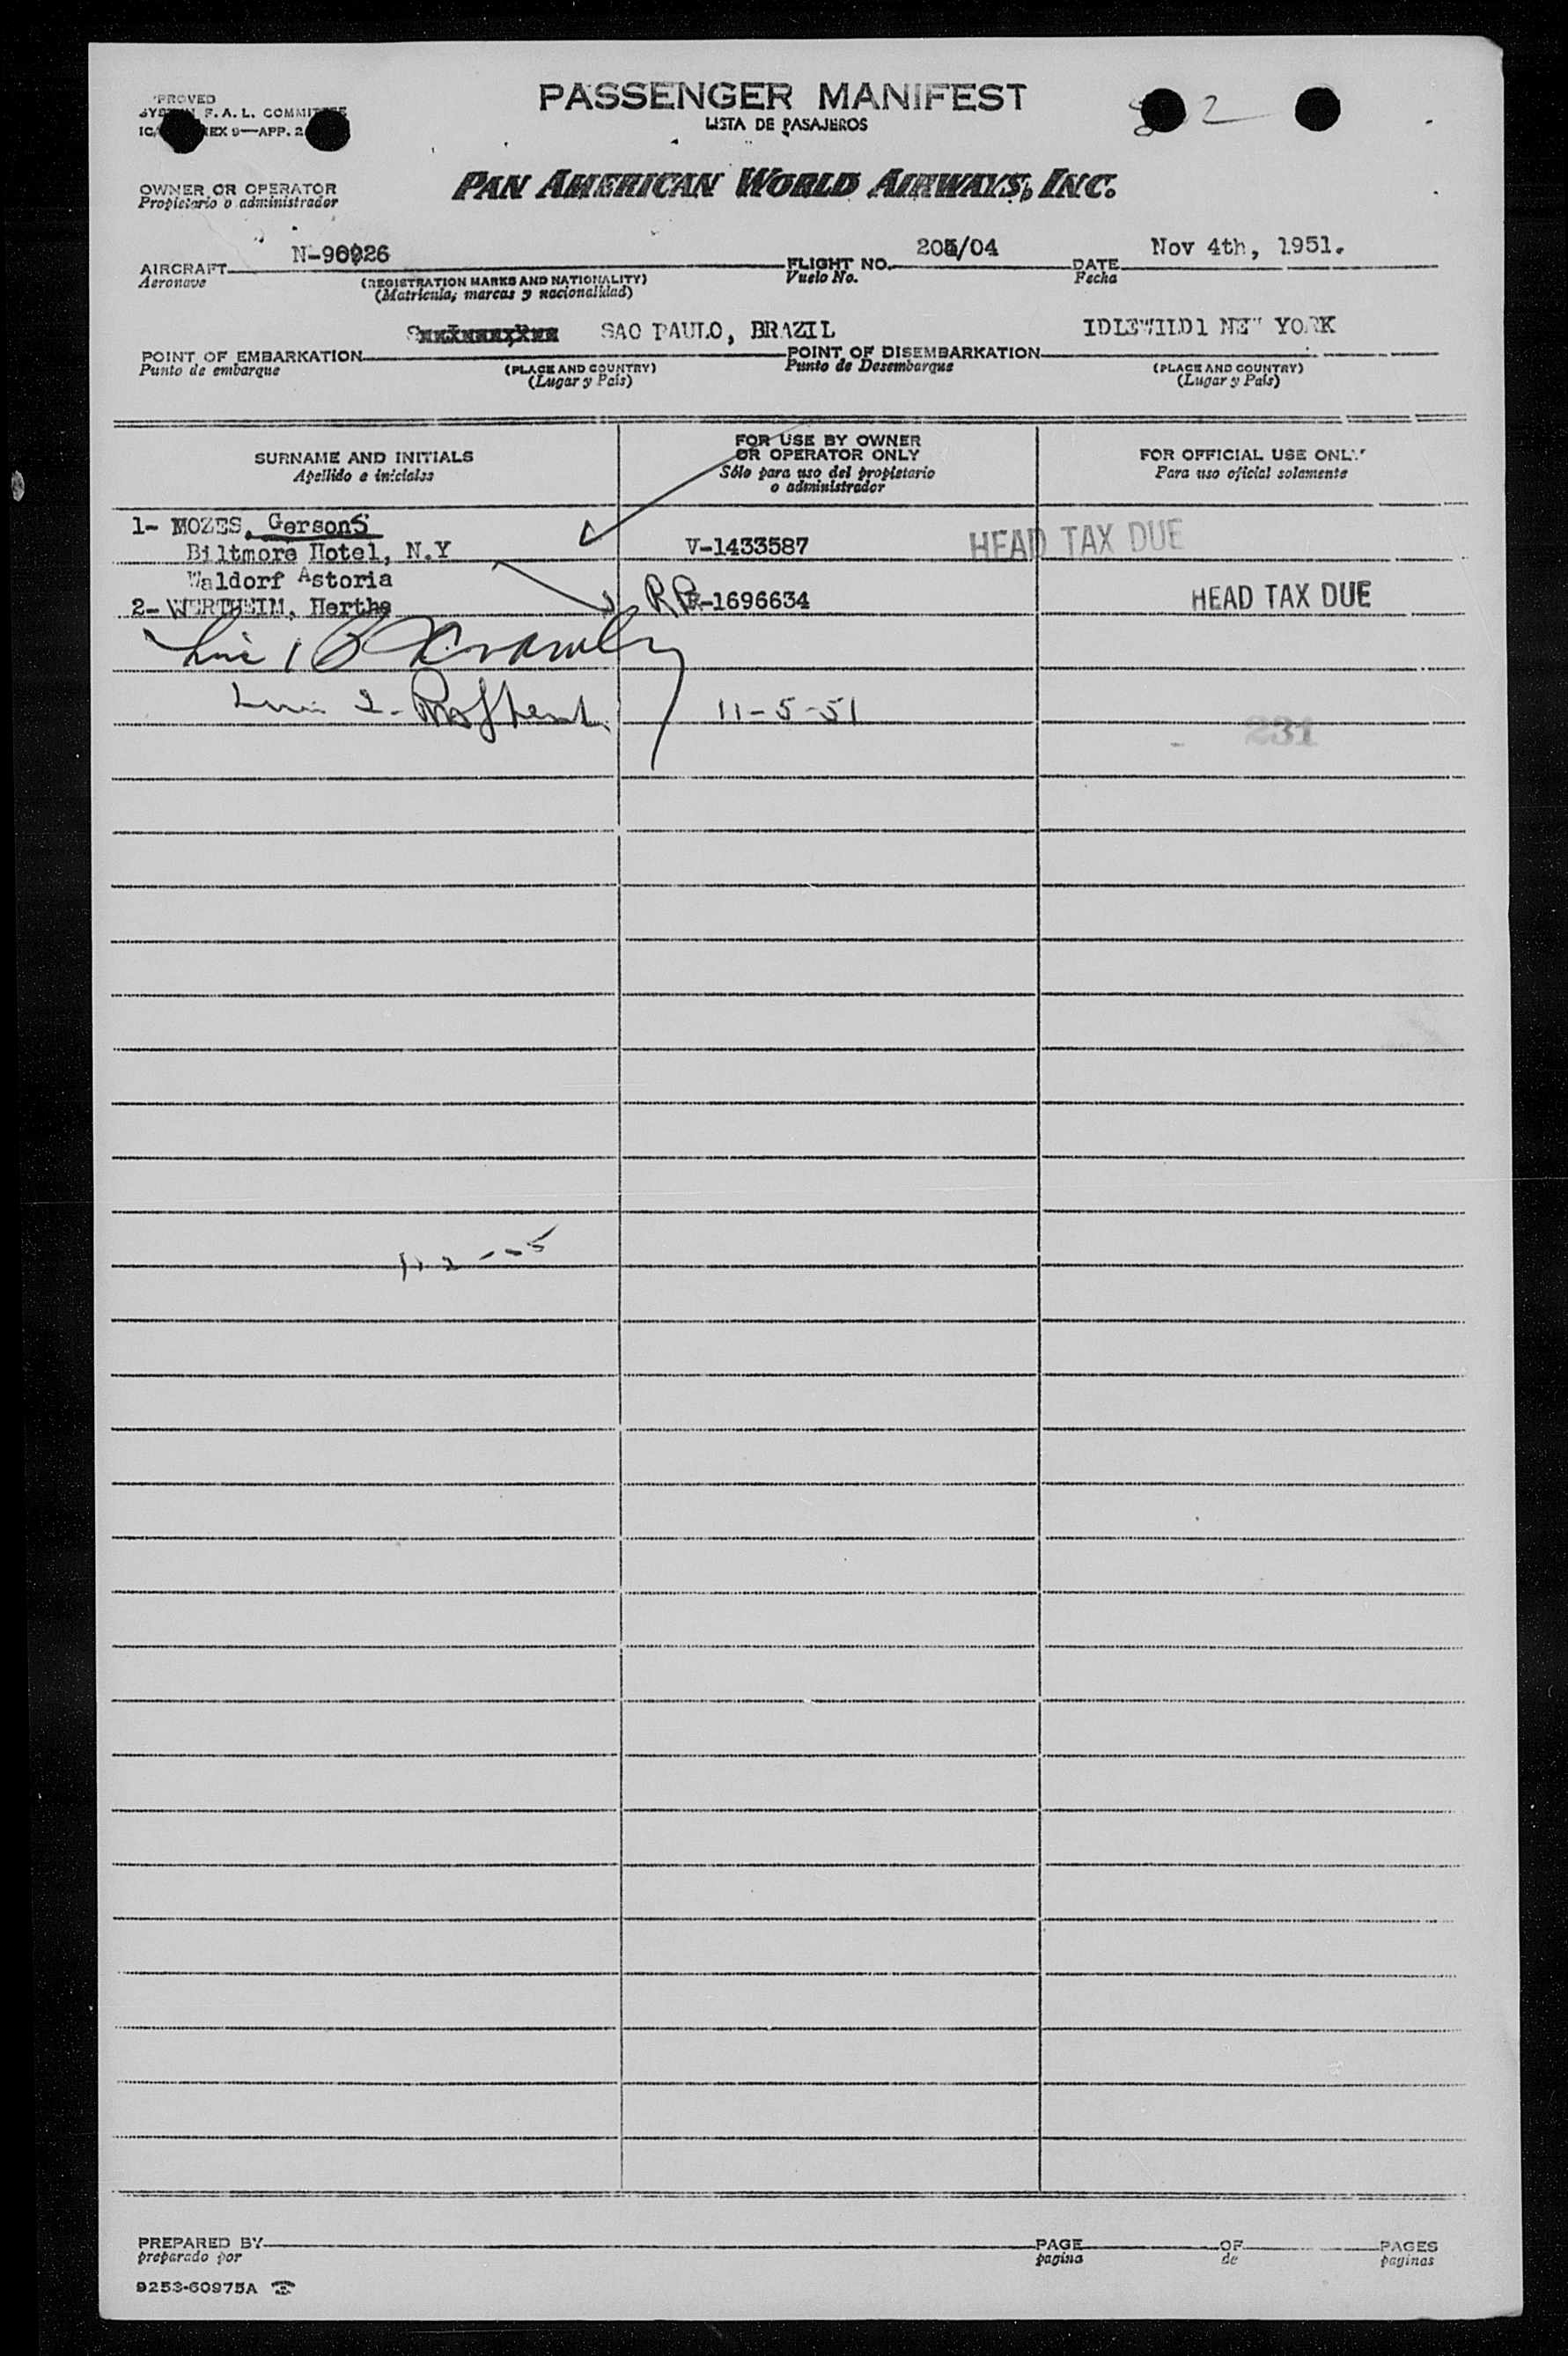 PASSENGER MANIFEST
LISTA DE PASAJEROS
F. A. L.
9—APP. 2
2
PAN AMERICAN WORLD AIRWAYS, INC.
OWNER OR OPERATOR
Propietario o administrador
AIRCRAFT N-90926 FLIGHT NO. 205/04 DATE Nov 4th, 1951.
Aeronave (REGISTRATION MARKS AND NATIONALITY) Vuelo No. Fecha
(Matrícula, marcas y nacionalidad)
POINT OF EMBARKATION SAO PAULO, BRAZIL POINT OF DISEMBARKATION IDLEWILD1 NEW YORK
Punto de embarque (PLACE AND COUNTRY) Punto de Desembarque (PLACE AND COUNTRY)
(Lugar y País) (Lugar y País)
SURNAME AND INITIALS FOR USE BY OWNER OR OPERATOR ONLY FOR OFFICIAL USE ONLY
Apellido e iniciales Sólo para uso del propietario o administrador Para uso oficial solamente
1- MOZES, Gerson S
Biltmore Hotel, N.Y V-1433587 HEAD TAX DUE
Waldorf Astoria
2- WERTHEIM, Hertha -1696634 HEAD TAX DUE
Line 1
Line 2- 11-5-51
231
PREPARED BY PAGE OF PAGES
preparado por pagina de paginas
9253-60975A